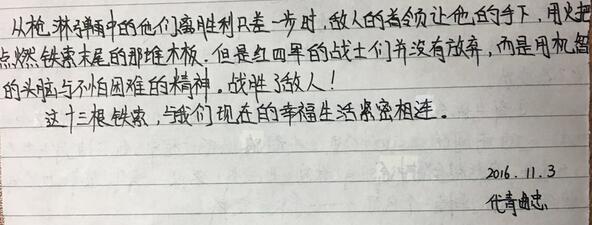 从枪淋弹雨中的他们离胜利只差一步时,敌人的首领让他的手下,用火把
点燃铁索末尾的那堆木板。但是红四军的战士们并没有放弃,而是用机智
的头脑与不怕困难的精神。战胜了敌人!
这十三根铁索,与我们现在的幸福生活紧密相连。
2016.11.3
代青